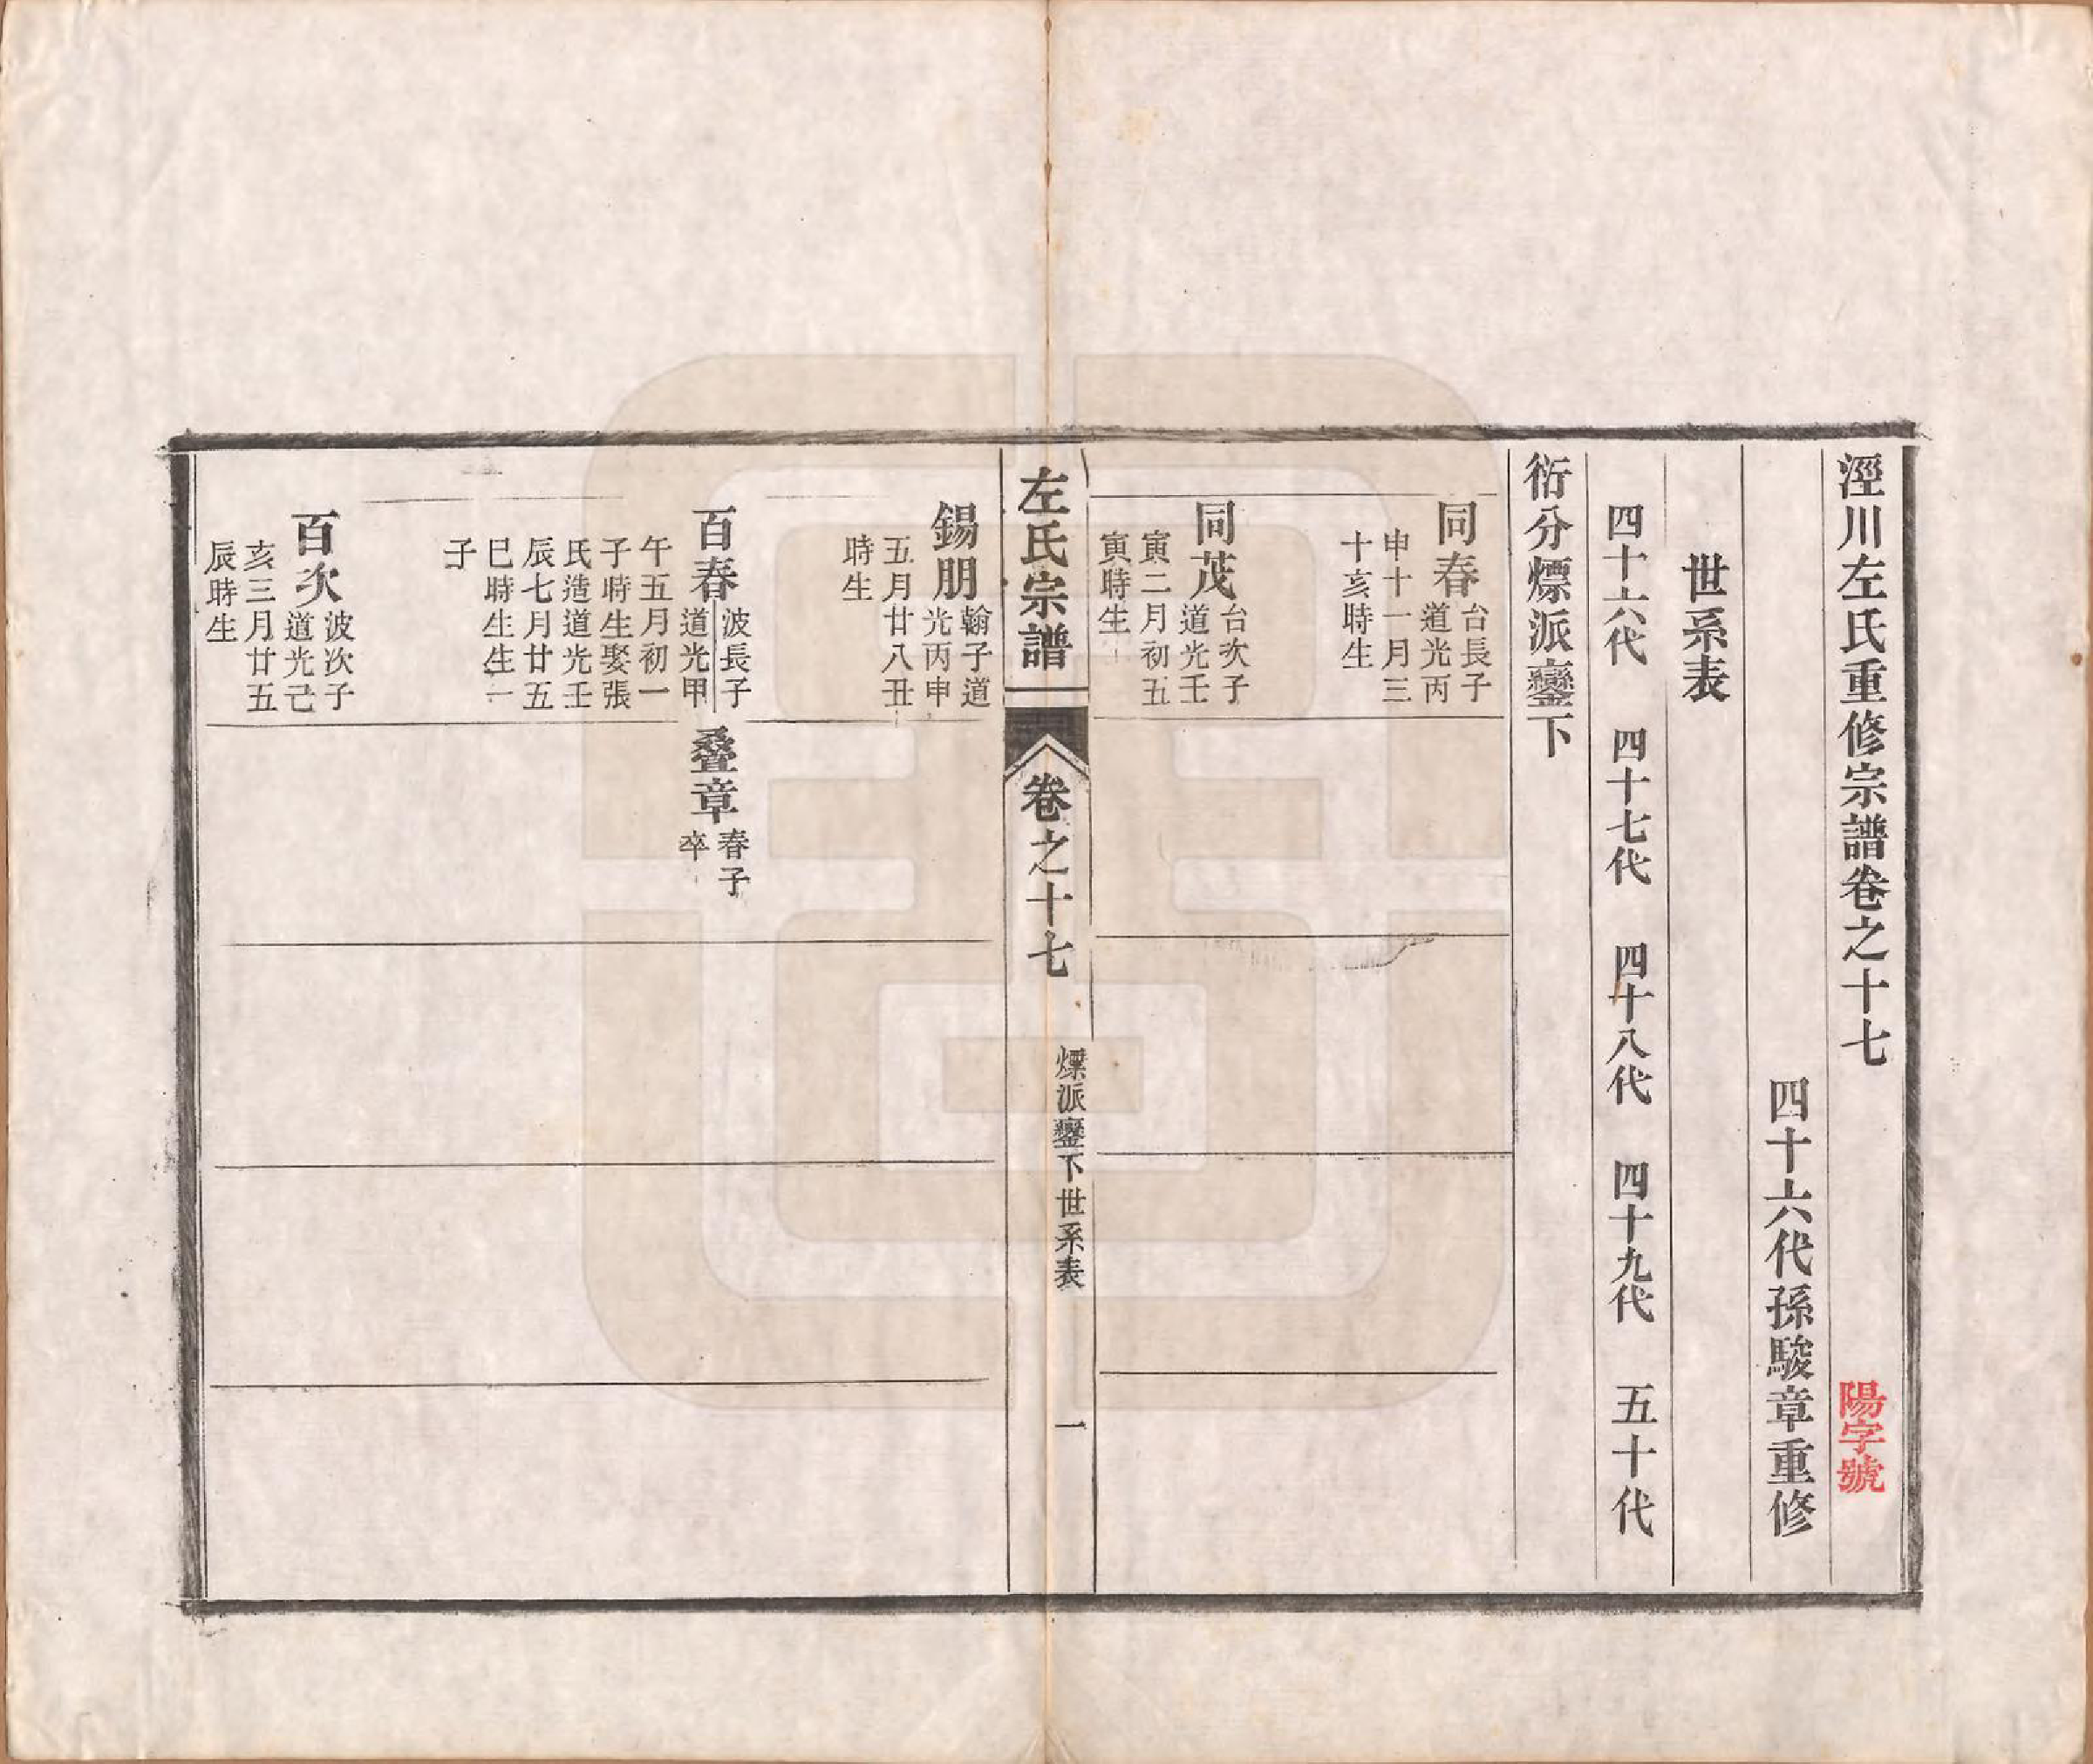 涇川左氏重修宗譜卷之十七
陽字號
四十六代孫駿章重修
世系表
四十六代 四十七代 四十八代 四十九代 五十代
衍分熛派鑾下
同春
台長子
道光丙
申十一月三
十亥時生
同茂
台次子
道光壬
寅二月初五
寅時生
左氏宗譜
卷之十七
熛派鑾下世系表
一
錫朋
翰子道
光丙申
五月廿八丑
時生
百春
波長子
道光甲
午五月初一
子時生娶張
氏造道光壬
辰七月廿五
巳時生生一
子
疊章
春子
卒
百次
波次子
道光己
亥三月廿五
辰時生